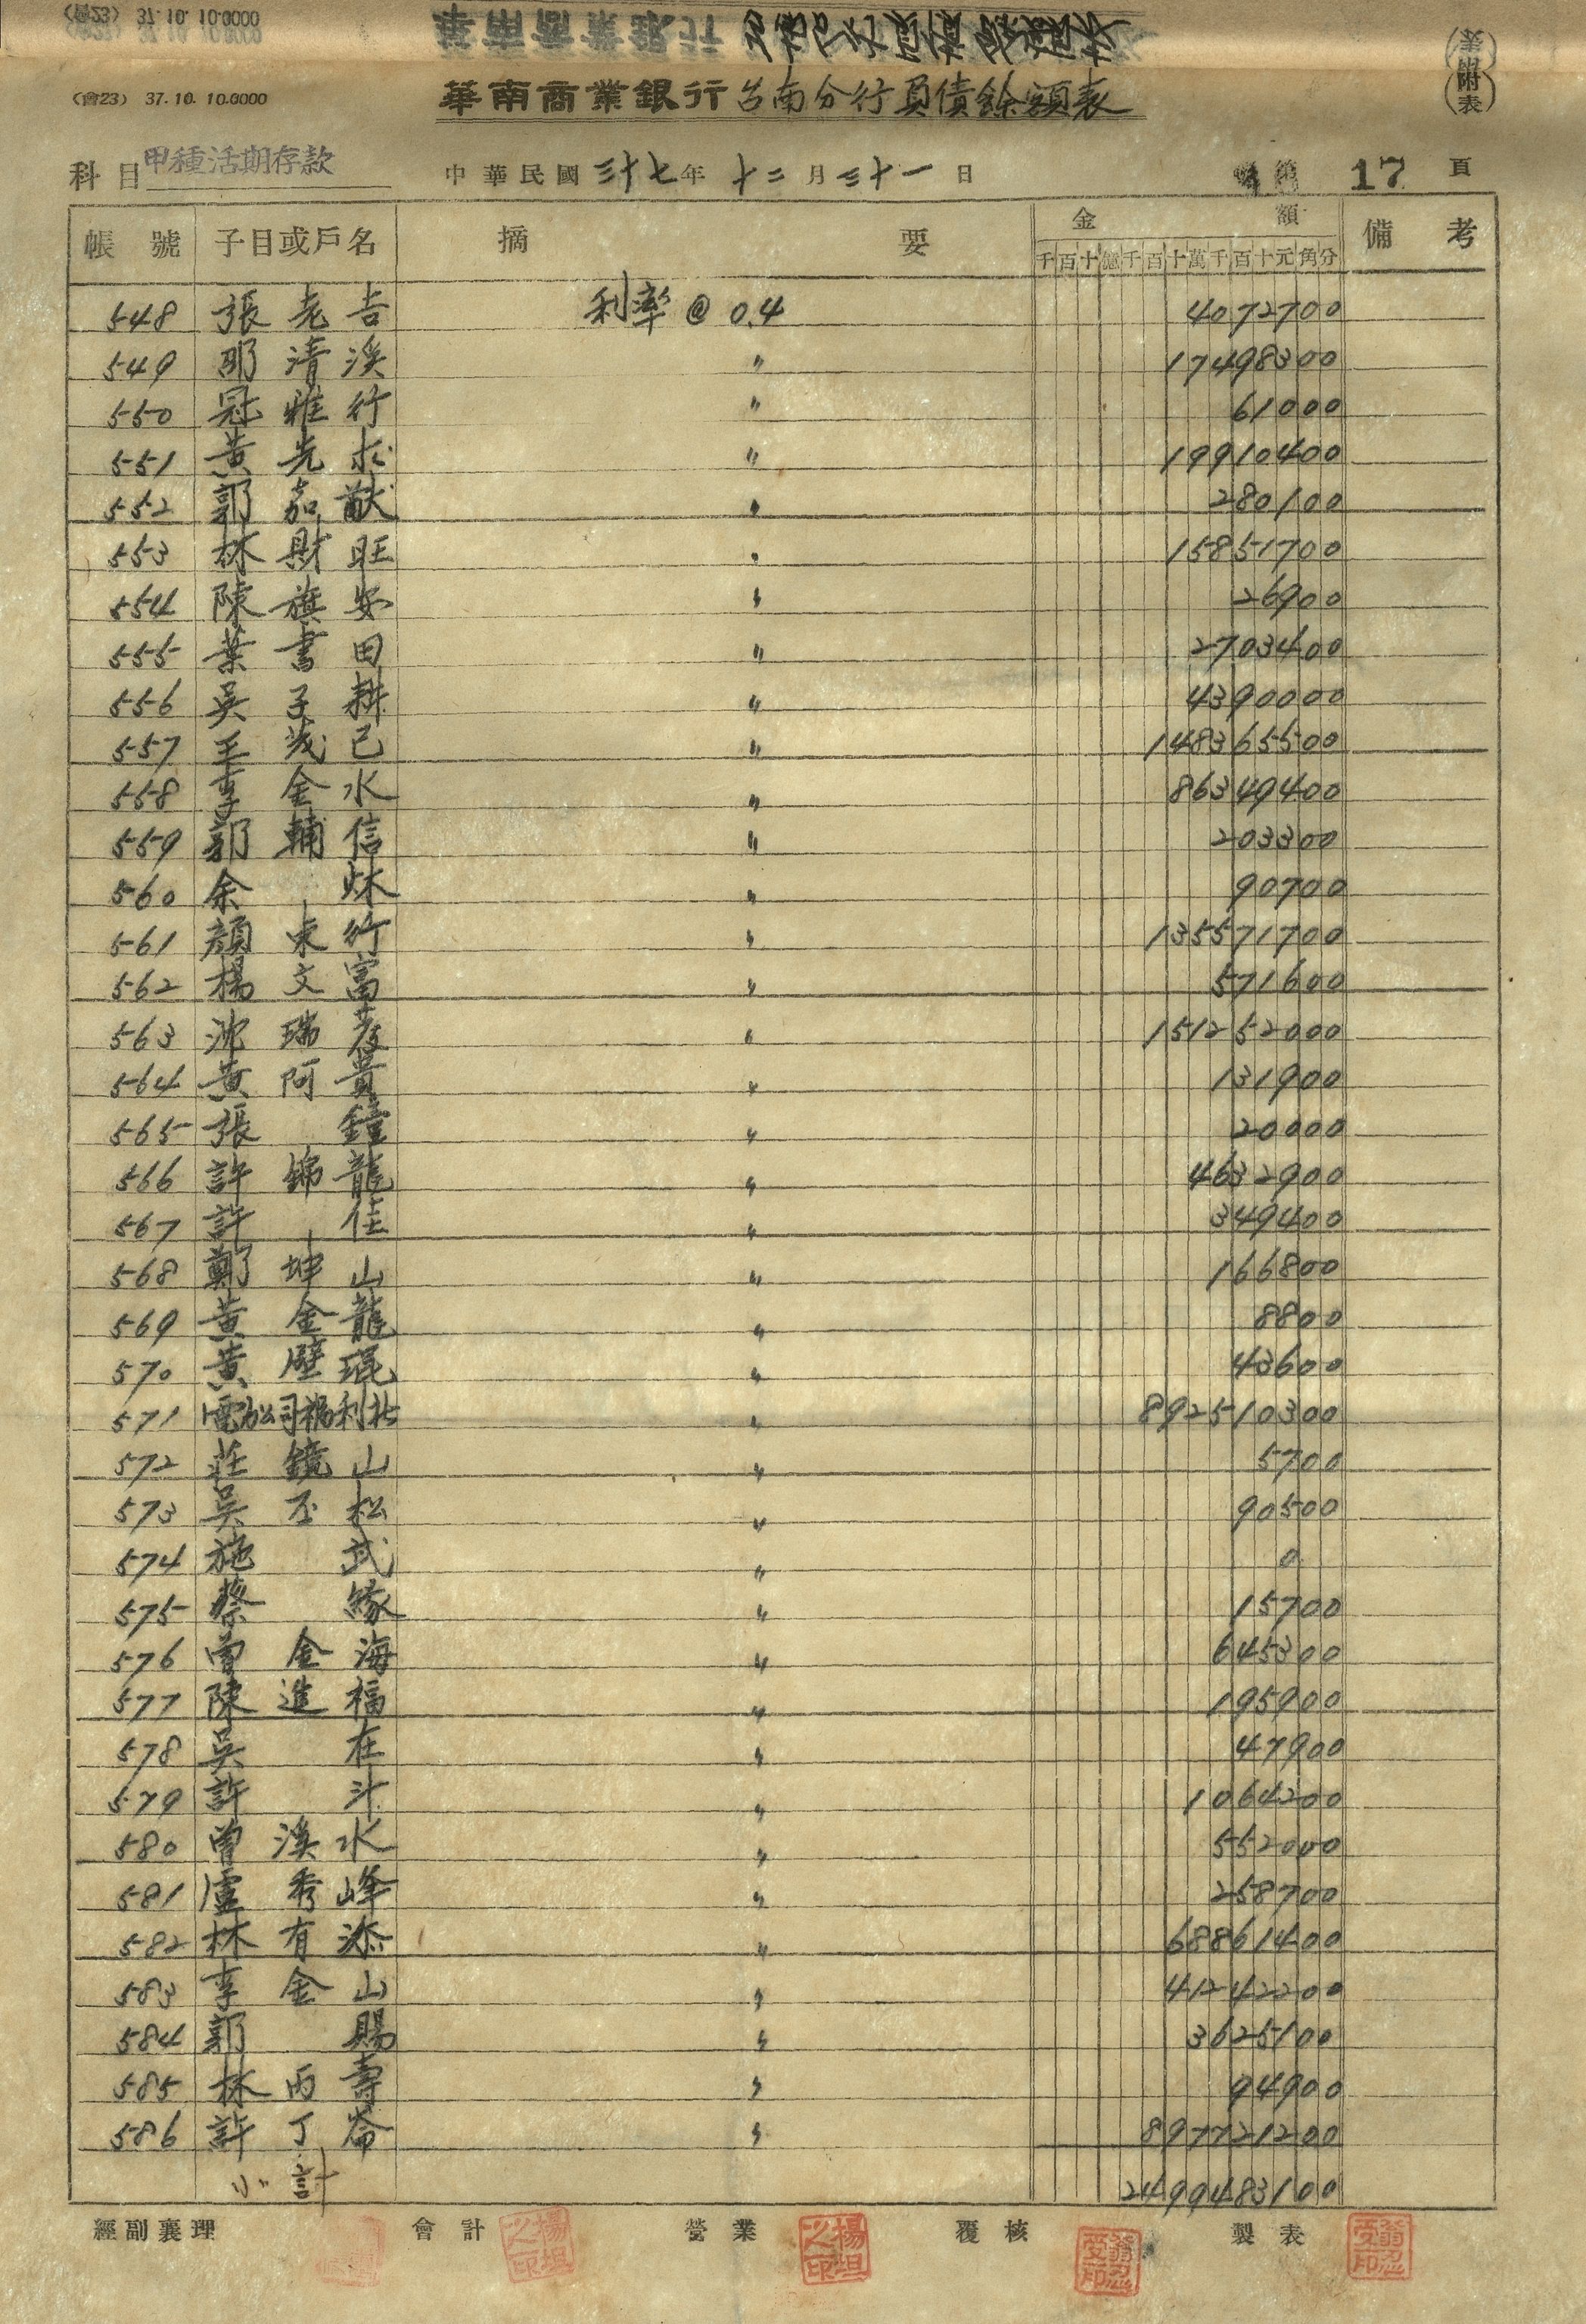 (會23) 37.10.10.0000
(會23) 37.10.10.0000
華南商業銀行台南分行負債餘額表
(附表)
科目 甲種活期存款 中華民國三十七年十二月三十一日 第17頁
帳號 子目或戶名 摘要 金額 備考
千百十億千百十萬千百十元角分
548 張老吉 利率@0.4 4072700
549 邵清溪 〃 17498300
550 冠雅行 〃 61000
551 黃先求 〃 19910400
552 郭嘉猷 〃 280100
553 林財旺 〃 15851700
554 陳旗安 〃 26900
555 葉書田 〃 2703400
556 吳子耕 〃 4390000
557 王茂己 〃 148365500
558 李金水 〃 86349400
559 郭輔信 〃 203300
560 余烌 〃 90700
561 顏東行 〃 135571700
562 楊文富 〃 571600
563 沈瑞彦 〃 151252000
564 黃阿貴 〃 131900
565 張鐘 〃 20000
566 許錦龍 〃 4632900
567 許佳 〃 349400
568 鄭坤山 〃 166800
569 黃金龍 〃 8800
570 黃壁琨 〃 43600
571 電力公司福利社 〃 892510300
572 莊鏡山 〃 5700
573 吳丕松 〃 90500
574 施武 〃 0
575 蔡緣 〃 15700
576 曾金海 〃 645300
577 陳進福 〃 195900
578 吳在 〃 47900
579 許斗 〃 1064200
580 曾溪水 〃 552000
581 盧秀峰 〃 258700
582 林有添 〃 68861400
583 李金山 〃 41242200
584 郭賜 〃 3625100
585 林丙壽 〃 94900
586 許丁崙 〃 897721200
小計 2499483100
經副襄理 會計 營業 覆核 製表
楊坦之印 楊坦之印 翁忍受印 翁忍受印